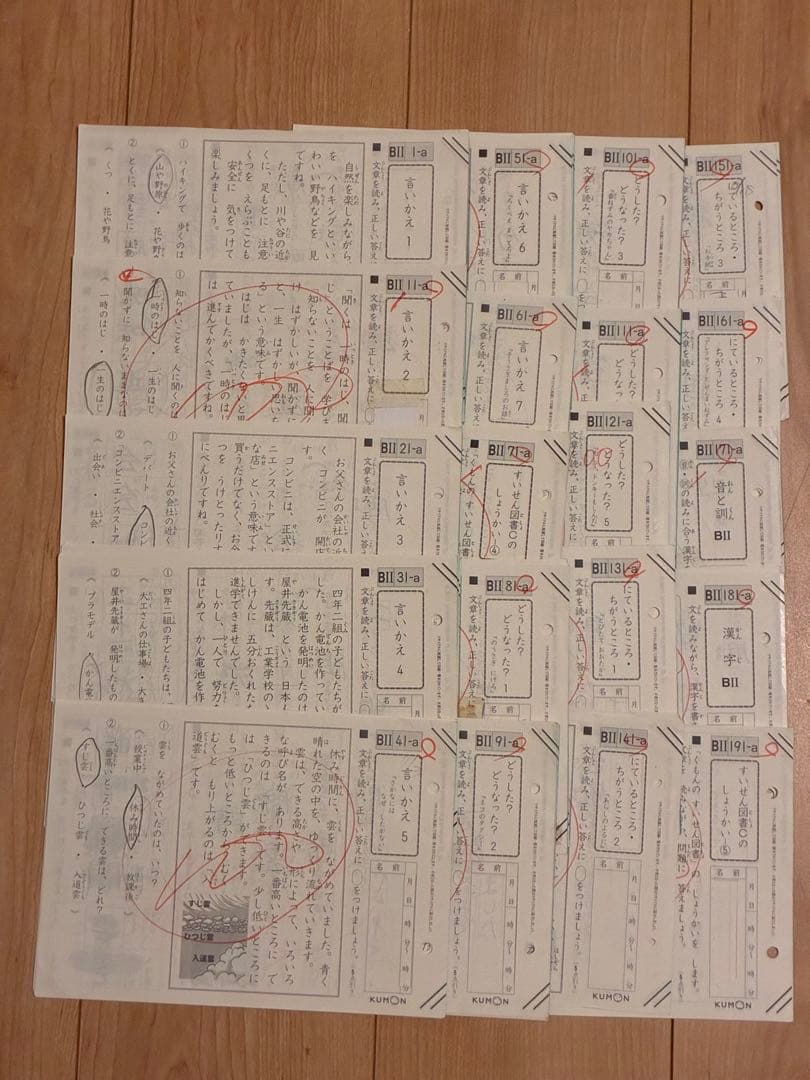 BⅡ 1-a
言いかえ 1
■ 文章を読み、正しい答えに
自然を楽しみながら、
を ハイキングといい
わいい野鳥などを 見
ですね。
ただし、川や谷の近
くに、足もとに 注意
くつを えらぶことも
安全に 気をつけて
楽しみましょう。
① ハイキングで 歩くのは
山や野原 ・ 花や野
② とくに、足もとに 注意
くつ ・ 花や野鳥
BⅡ 51-a
言いかえ 6
名前
■ 文章を読み、正しい答えに○
BⅡ 101-a
どうした?
どうなった? 3
名前
■ 文章を読み、正しい答えに
BⅡ 151-a
にているところ・
ちがうところ 3
名前
■ 文章を読み、正しい答えに
BⅡ 11-a
言いかえ 2
月
■ 文章を読み、正しい答えに
「聞くは 一時のはじ、聞
じ」ということばを 学びま
知らないことを 人に聞
け はずかしいが、聞かずに
と、一生 はずかしい思いた
る」という意味です。
はじは かきたくないと思
ていましたが、「一時のは
は 進んでかくべきですね。
① 知らないことを 人に聞くのは
一時のはじ ・ 一生のはじ
聞かずに 知らないままなのは
一時のはじ ・ 一生のはじ
BⅡ 61-a
言いかえ 7
名前
■ 文章を読み、正しい答えに
BⅡ 111-a
どうした?
どうなっ
■ 文章を読み、正しい
BⅡ 161-a
にているところ・
ちがうところ 4
名前
■ 文章を読み、正しい
BⅡ 21-a
言いかえ 3
■ 文章を読み、正しい答えに
お父さんの会社の近
く、「コンビニ」が 開店
す。
コンビニは、正式に
ニエンスストア」とい
な店」という意味です
買うだけでなく、お金
つを うけとったりす
にべんりですね。
① お父さんの会社の近く
デパート ・ コンビ
② 「コンビニエンスストア
出会い ・ 社会
BⅡ 71-a
すいせん図書Cの
しょうかい④
■「くもんのすいせん図書
BⅡ 121-a
どうした?
どうなった? 5
■ 文章を読み、正しい
BⅡ 171-a
音と訓
BⅡ
■ 音・訓の読みに合う漢字
BⅡ 31-a
言いかえ 4
■ 文章を読み、正しい答えに
四年二組の子どもたちが
した。かん電池を作ってい
かん電池を発明したのは
屋井先蔵 という 日本人
す。先蔵は、工業学校の
しけんに 五分おくれた
進学できませんでした。
しかし、一人で 努力
はじめて かん電池を作
① 四年二組の子どもたちは、
大工さんの仕事場 ・ 大さ
② 屋井先蔵が 発明したもの
プラモデル ・ かん電
BⅡ 81-a
どうした?
どうなった? 1
名前
■ 文章を読み、正しい答えに
BⅡ 131-a
にているところ・
ちがうところ 1
名前
■ 文章を読み、正しい答えに
BⅡ 181-a
漢字
BⅡ
名前
■ 文を読みながら、漢字を書
BⅡ 41-a
言いかえ 5
名前
月 日
時 分
時 分
■ 文章を読み、正しい答えに○をつけましょう。
休み時間に、雲を ながめていました。青く
晴れた空の中を、ゆっくり流れていきます。
雲は、できる高さや 形によって、いろいろ
な呼び名が あります。一番高いところに で
きるのは 「すじ雲」です。少し低いところに
は 「ひつじ雲」ができます。
もっと低いところから
むくと もり上がるのは 「入
道雲」です。
すじ雲
ひつじ雲
入道雲
① 雲を ながめていたのは、いつ?
授業中 ・ 休み時間 ・ 放課後
② 一番高いところに できる雲は、どれ?
すじ雲 ・ ひつじ雲 ・ 入道雲
KUMON
BⅡ 91-a
どうした?
どうなった? 2
名前
月 日
時 分
時 分
■ 文章を読み、正しい答えに○をつけましょう。
KUMON
BⅡ 141-a
にているところ・
ちがうところ 2
名前
月 日
時 分
時 分
■ 文章を読み、正しい答えに○をつけましょう。
KUMON
BⅡ 191-a
すいせん図書Cの
しょうかい⑤
名前
月 日
時 分
時 分
■「くもんの すいせん図書」の しょうかいを します。
文章を読み、問題に 答えましょう。
KUMON